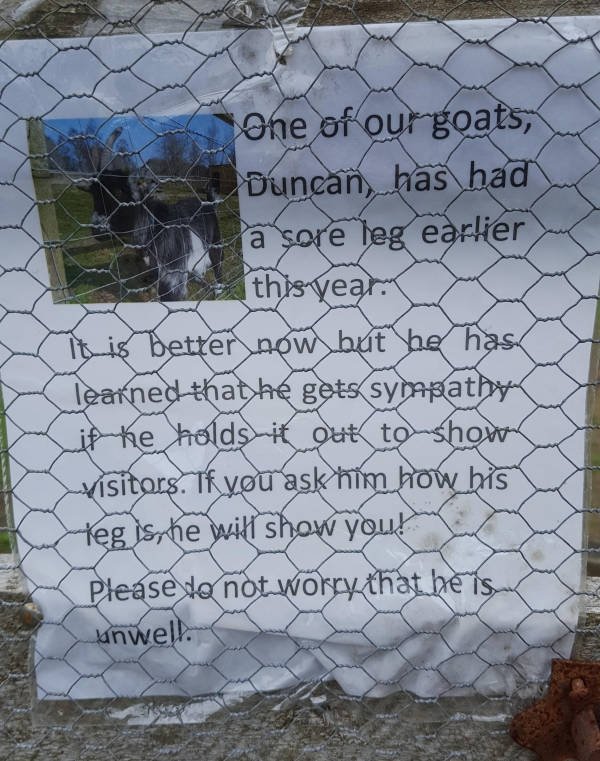 One of our goats,
Duncan, has had
a sore leg earlier
this year.
It is better now but he has
learned that he gets sympathy
if he holds it out to show
visitors. If you ask him how his
leg is, he will show you!
Please do not worry that he is
unwell.